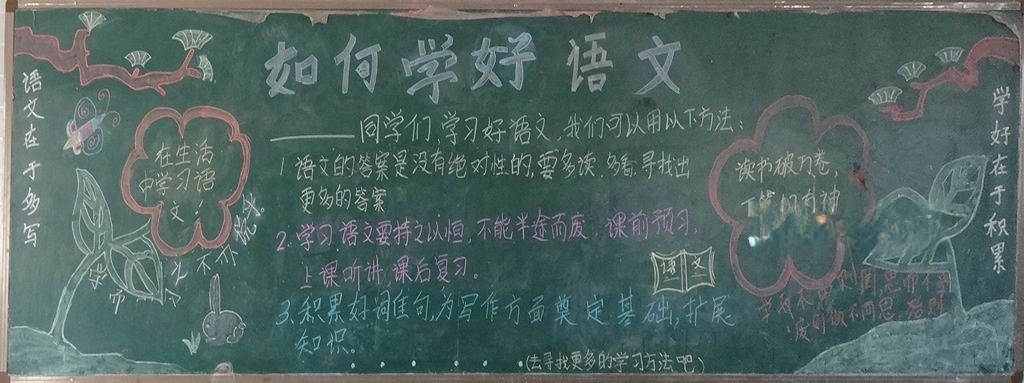 如何学好语文
语文在于多写
学好在于积累
在生活
中学习语
文！
——同学们，学习好语文，我们可以用以下方法：
1 语文的答案是没有绝对性的，要多读、多看、寻找出
更多的答案
2. 学习语文要持之以恒，不能半途而废，课前预习，
上课听讲，课后复习。
3. 积累好词佳句，为写作方面奠定基础，扩展
知识。
语文
读书破万卷，
下笔如有神
(去寻找更多的学习方法吧)